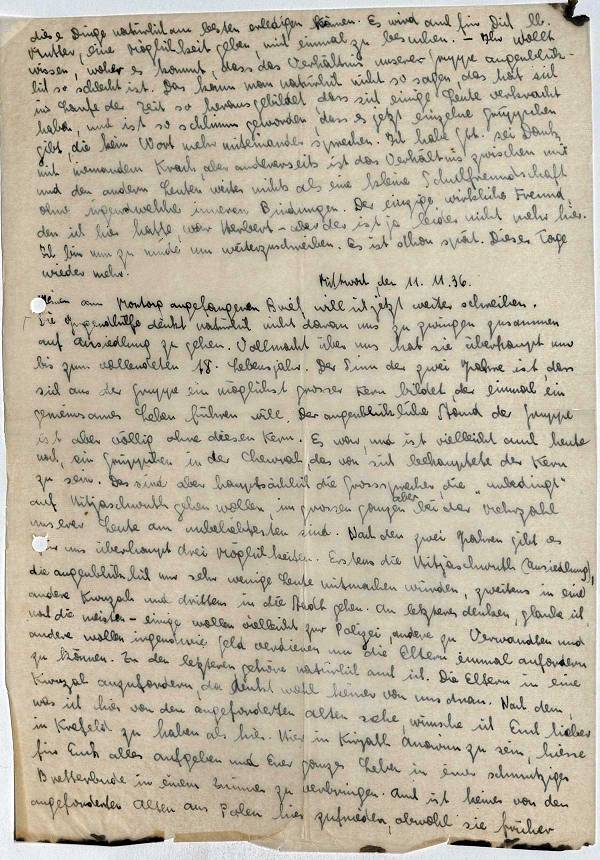 diese Dinge natürlich am besten erledigen können. Es wird auch für Dich lb.
Mutter, eine Möglichkeit geben, mich einmal zu besuchen. – Ihr wollt
wissen, woher es kommt, dass das Verhältnis unserer Gruppe augenblick-
lich so schlecht ist. Das kann man natürlich nicht so sagen, das hat sich
im Laufe der Zeit so herausgebildet, dass sich einige Leute verkracht
haben, und ist so schlimm geworden, dass es jetzt einzelne Grüppchen
gibt, die kein Wort mehr miteinander sprechen. Ich habe Gtt. sei Dank
mit niemandem Krach aber andererseits ist das Verhältnis zwischen mir
und den andern Leuten weiter nichts als eine kleine Schulfreundschaft
ohne irgendwelche inneren Bindungen. Der einzige, wirkliche Freund,
den ich hier hatte war Herbert – aber der ist ja leider nicht mehr hier.
Ich bin nun zu müde um weiterzuschreiben. Es ist schon spät. Dieser Tage
wieder mehr.
Mittwoch den 11. 11. 36.
Meinen am Montag angefangenen Brief will ich jetzt weiter schreiben.
Die Jugendhilfe denkt natürlich nicht daran uns zu zwingen zusammen
auf Ansiedlung zu gehen. Vollmacht über uns hat sie überhaupt nur
bis zum vollendeten 18. Lebensjahr. Der Sinn der zwei Jahre ist dass
sich aus der Gruppe ein möglichst grosser Kern bildet der einmal ein
gemeinsames Leben führen will. Der augenblickliche Stand der Gruppe
ist aber völlig ohne diesen Kern. Es war, und ist vielleicht auch heute
noch, ein Grüppchen in der Chewrah, das von sich behauptete der Kern
zu sein. Das sind aber hauptsächlich die Grosssprecher, die "unbedingt"
auf Hitjaschwuth gehen wollen, im grossen ganzen aber bei der Mehrzahl
unserer Leute am unbeliebtesten sind. Nach den zwei Jahren gibt es
für uns überhaupt drei Möglichkeiten. Erstens die Hitjaschwuth (Ansiedlung),
die augenblicklich nur sehr wenige Leute mitmachen würden, zweitens in eine
andere Kwuzah und drittens in die Stadt gehen. An letzteres denken, glaube ich,
noch die meisten – einige wollen vielleicht zur Polizei, andere zu Verwandten und
andere wollen irgendwie Geld verdienen um die Eltern einmal anfordern
zu können. Zu den letzteren gehöre natürlich auch ich. Die Eltern in eine
Kwuzah anzufordern, da denkt wohl keiner von uns dran. Nach dem,
was ich hier von den angeforderten Alten sehe, wünsche ich Euch lieber
in Krefeld zu haben als hier. Hier in Kirjath Anawim zu sein, hiesse
für Euch alles aufgeben und Euer ganzes Leben in einer schmutzigen
Bretterbude in einem Zimmer zu verbringen. Auch ist keiner von den
angeforderten Alten aus Polen hier zufrieden, obwohl sie früher